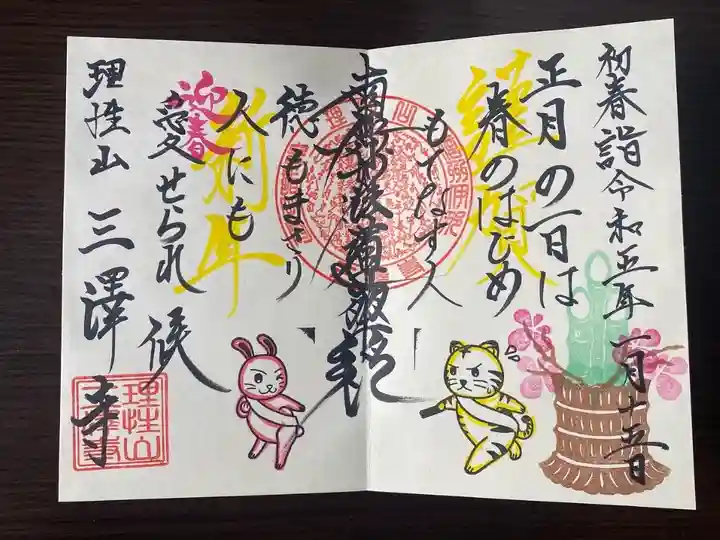 初春詣 令和五年 一月十五日
正月の一日は
春のはじめ
もてなす人
南無妙法蓮華経
徳もまさり
人にも
愛せられ候
謹賀
新年
迎春
理性山 三澤寺
理性山